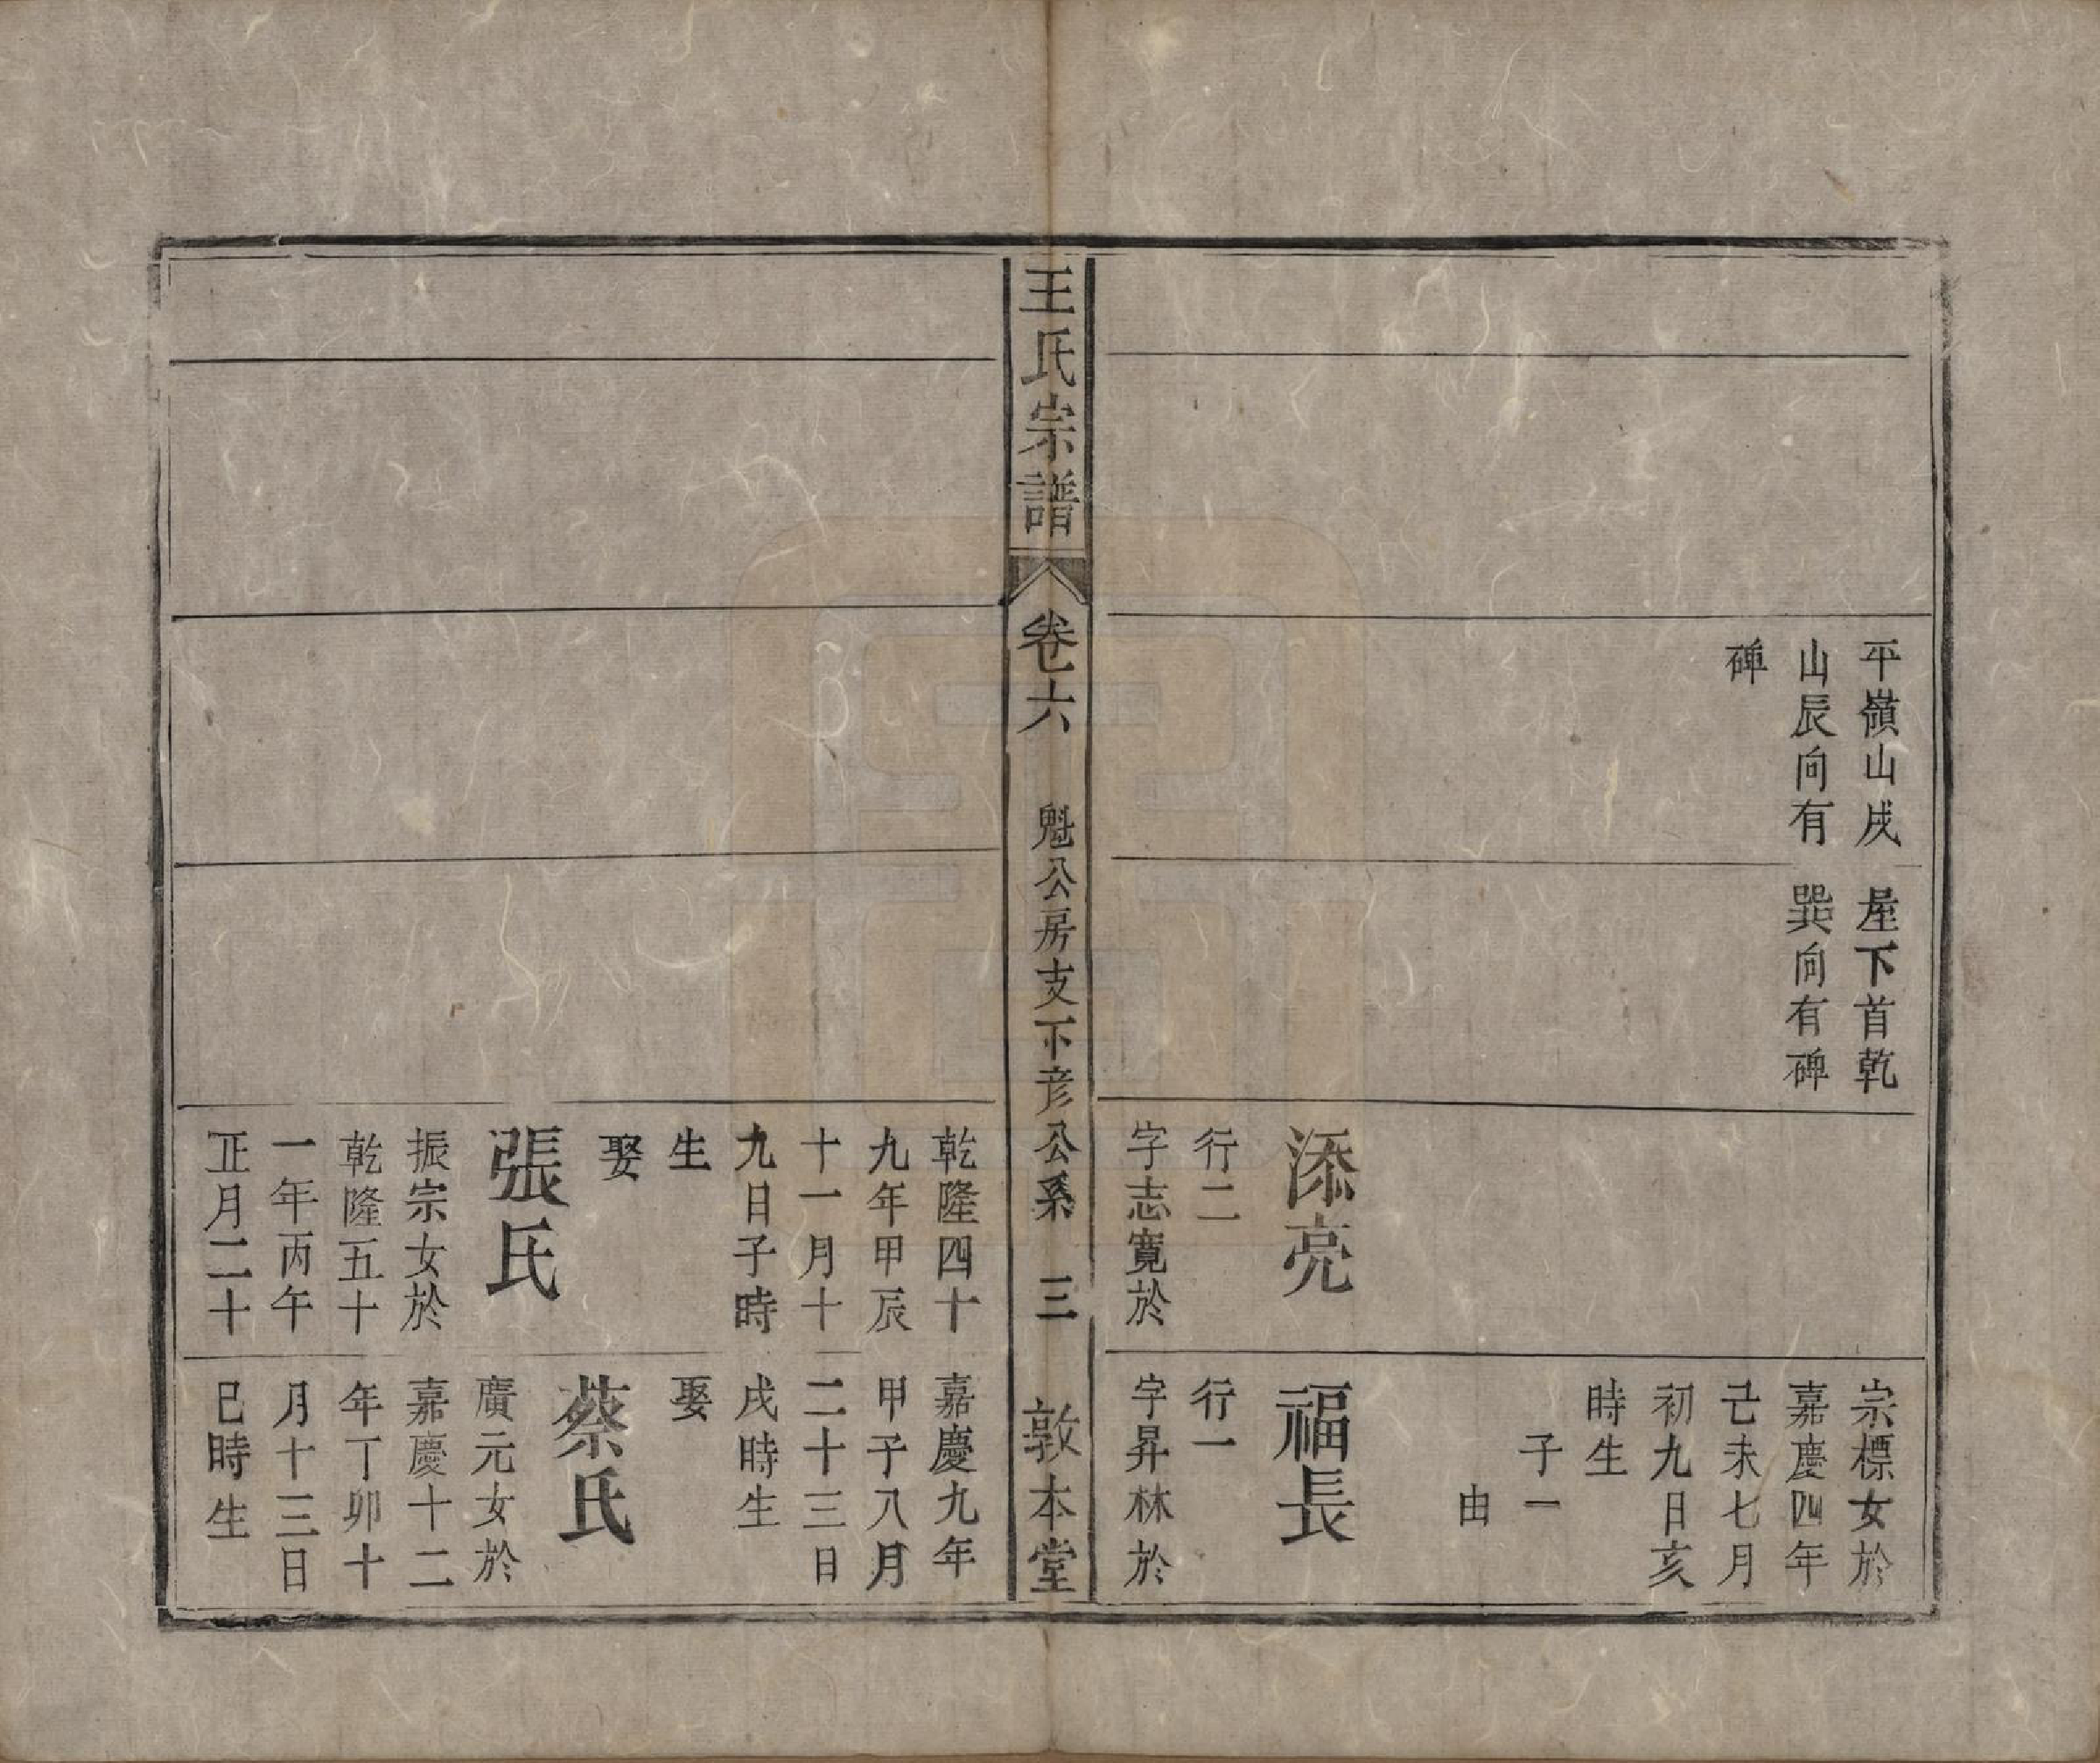 平嶺山戌
山辰向有
碑
屋下首乾
巽向有碑
添亮
行二
字志寬於
宗標女於
嘉慶四年
己未七月
初九日亥
時生
子一
由
福長
行一
字昇林於
王氏宗譜
卷六
魁公房支下彦公系
三
敦本堂
乾隆四十
九年甲辰
十一月十
九日子時
生
娶
張氏
振宗女於
乾隆五十
一年丙午
正月二十
嘉慶九年
甲子八月
二十三日
戌時生
娶
蔡氏
廣元女於
嘉慶十二
年丁卯十
月十三日
巳時生